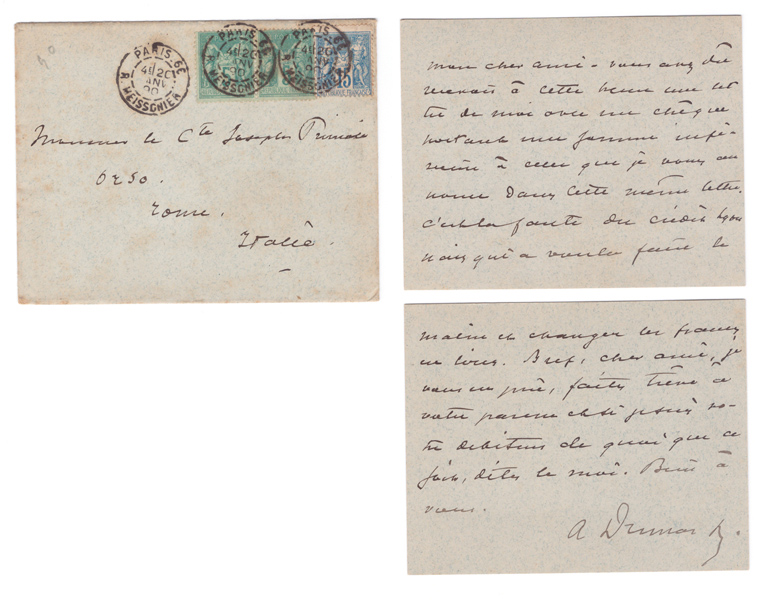 PARIS 66
R. MEISSONIER
PARIS 66
R. MEISSONIER
PARIS 66
R. MEISSONIER
15
Monsieur le Cte Joseph Primoli
Orso.
Rome.
Italie.
mon cher ami - vous avez dû
recevoir à cette heure une let
tre de moi avec un chèque
portant une somme infé-
rieure à celle que je vous
nonce dans cette même lettre.
c'est la faute du crédit Lyon
nais qui a voulu faire le
malin et changer les francs
en lires. Bref, cher ami, je
vous en prie, faites trêve à
votre paresse et si je suis vo-
tre débiteur de quoi que ce
soit, dites le moi. Bien à
vous.
A Dumas